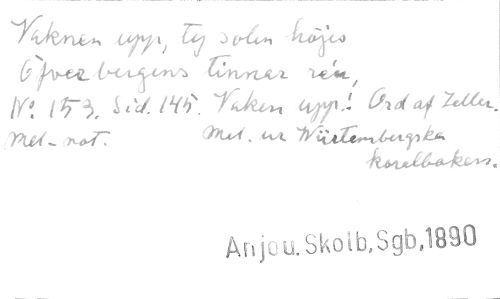 Vaknen upp, ty solen höjes
Öfver bergens tinnar re'n,
No. 153. Sid. 145. Vaken upp! Ord af Zeller.
Mel-not. Mel. ur Würtembergska
koralboken.
Anjou. Skolb, Sgb, 1890